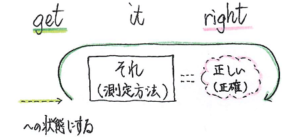 get it right
それ
(測定方法)
==
正しい
(正確)
への状態にする